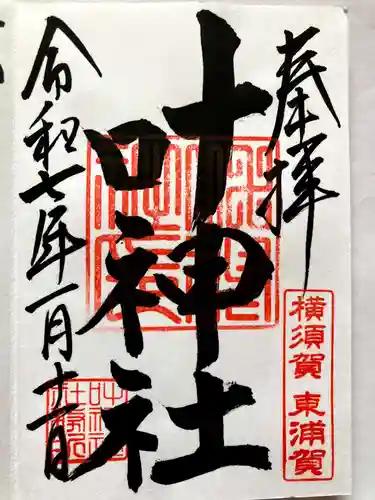 奉拝
横須賀 東浦賀
叶神社
令和七年一月十一日